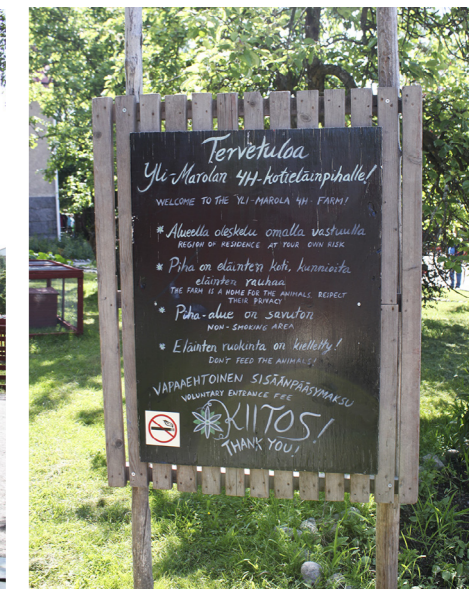 Tervetuloa
Yli-Marolan 4H-kotieläinpihalle!
WELCOME TO THE YLI-MAROLA 4H-FARM!
* Alueella oleskelu omalla vastuulla
REGION OF RESIDENCE AT YOUR OWN RISK
* Piha on eläinten koti, kunnioita
eläinten rauhaa
THE FARM IS A HOME FOR THE ANIMALS, RESPECT
THEIR PRIVACY
* Piha-alue on savuton
NON-SMOKING AREA
* Eläinten ruokinta on kielletty!
DON'T FEED THE ANIMALS!
VAPAAEHTOINEN SISÄÄNPÄÄSYMAKSU
VOLUNTARY ENTRANCE FEE
KIITOS!
THANK YOU!